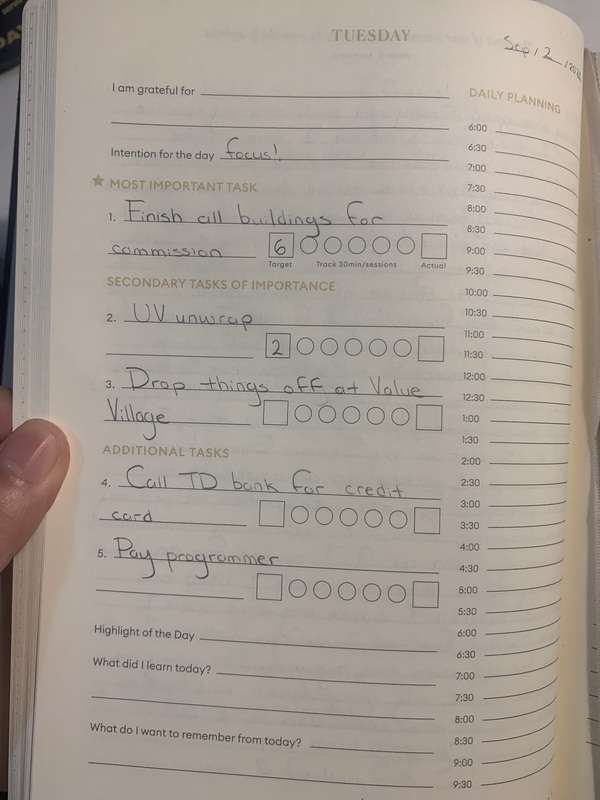 TUESDAY
Sep / 2 /
I am grateful for
Intention for the day focus!
MOST IMPORTANT TASK
1. Finish all buildings for
commission 6
Target Track 30min/sessions Actual
SECONDARY TASKS OF IMPORTANCE
2. UV unwrap
2
3. Drop things off at Value
Village
ADDITIONAL TASKS
4. Call TD bank for credit
card
5. Pay programmer
Highlight of the Day
What did I learn today?
What do I want to remember from today?
DAILY PLANNING
6:00
6:30
7:00
7:30
8:00
8:30
9:00
9:30
10:00
10:30
11:00
11:30
12:00
12:30
1:00
1:30
2:00
2:30
3:00
3:30
4:00
4:30
5:00
5:30
6:00
6:30
7:00
7:30
8:00
8:30
9:00
9:30